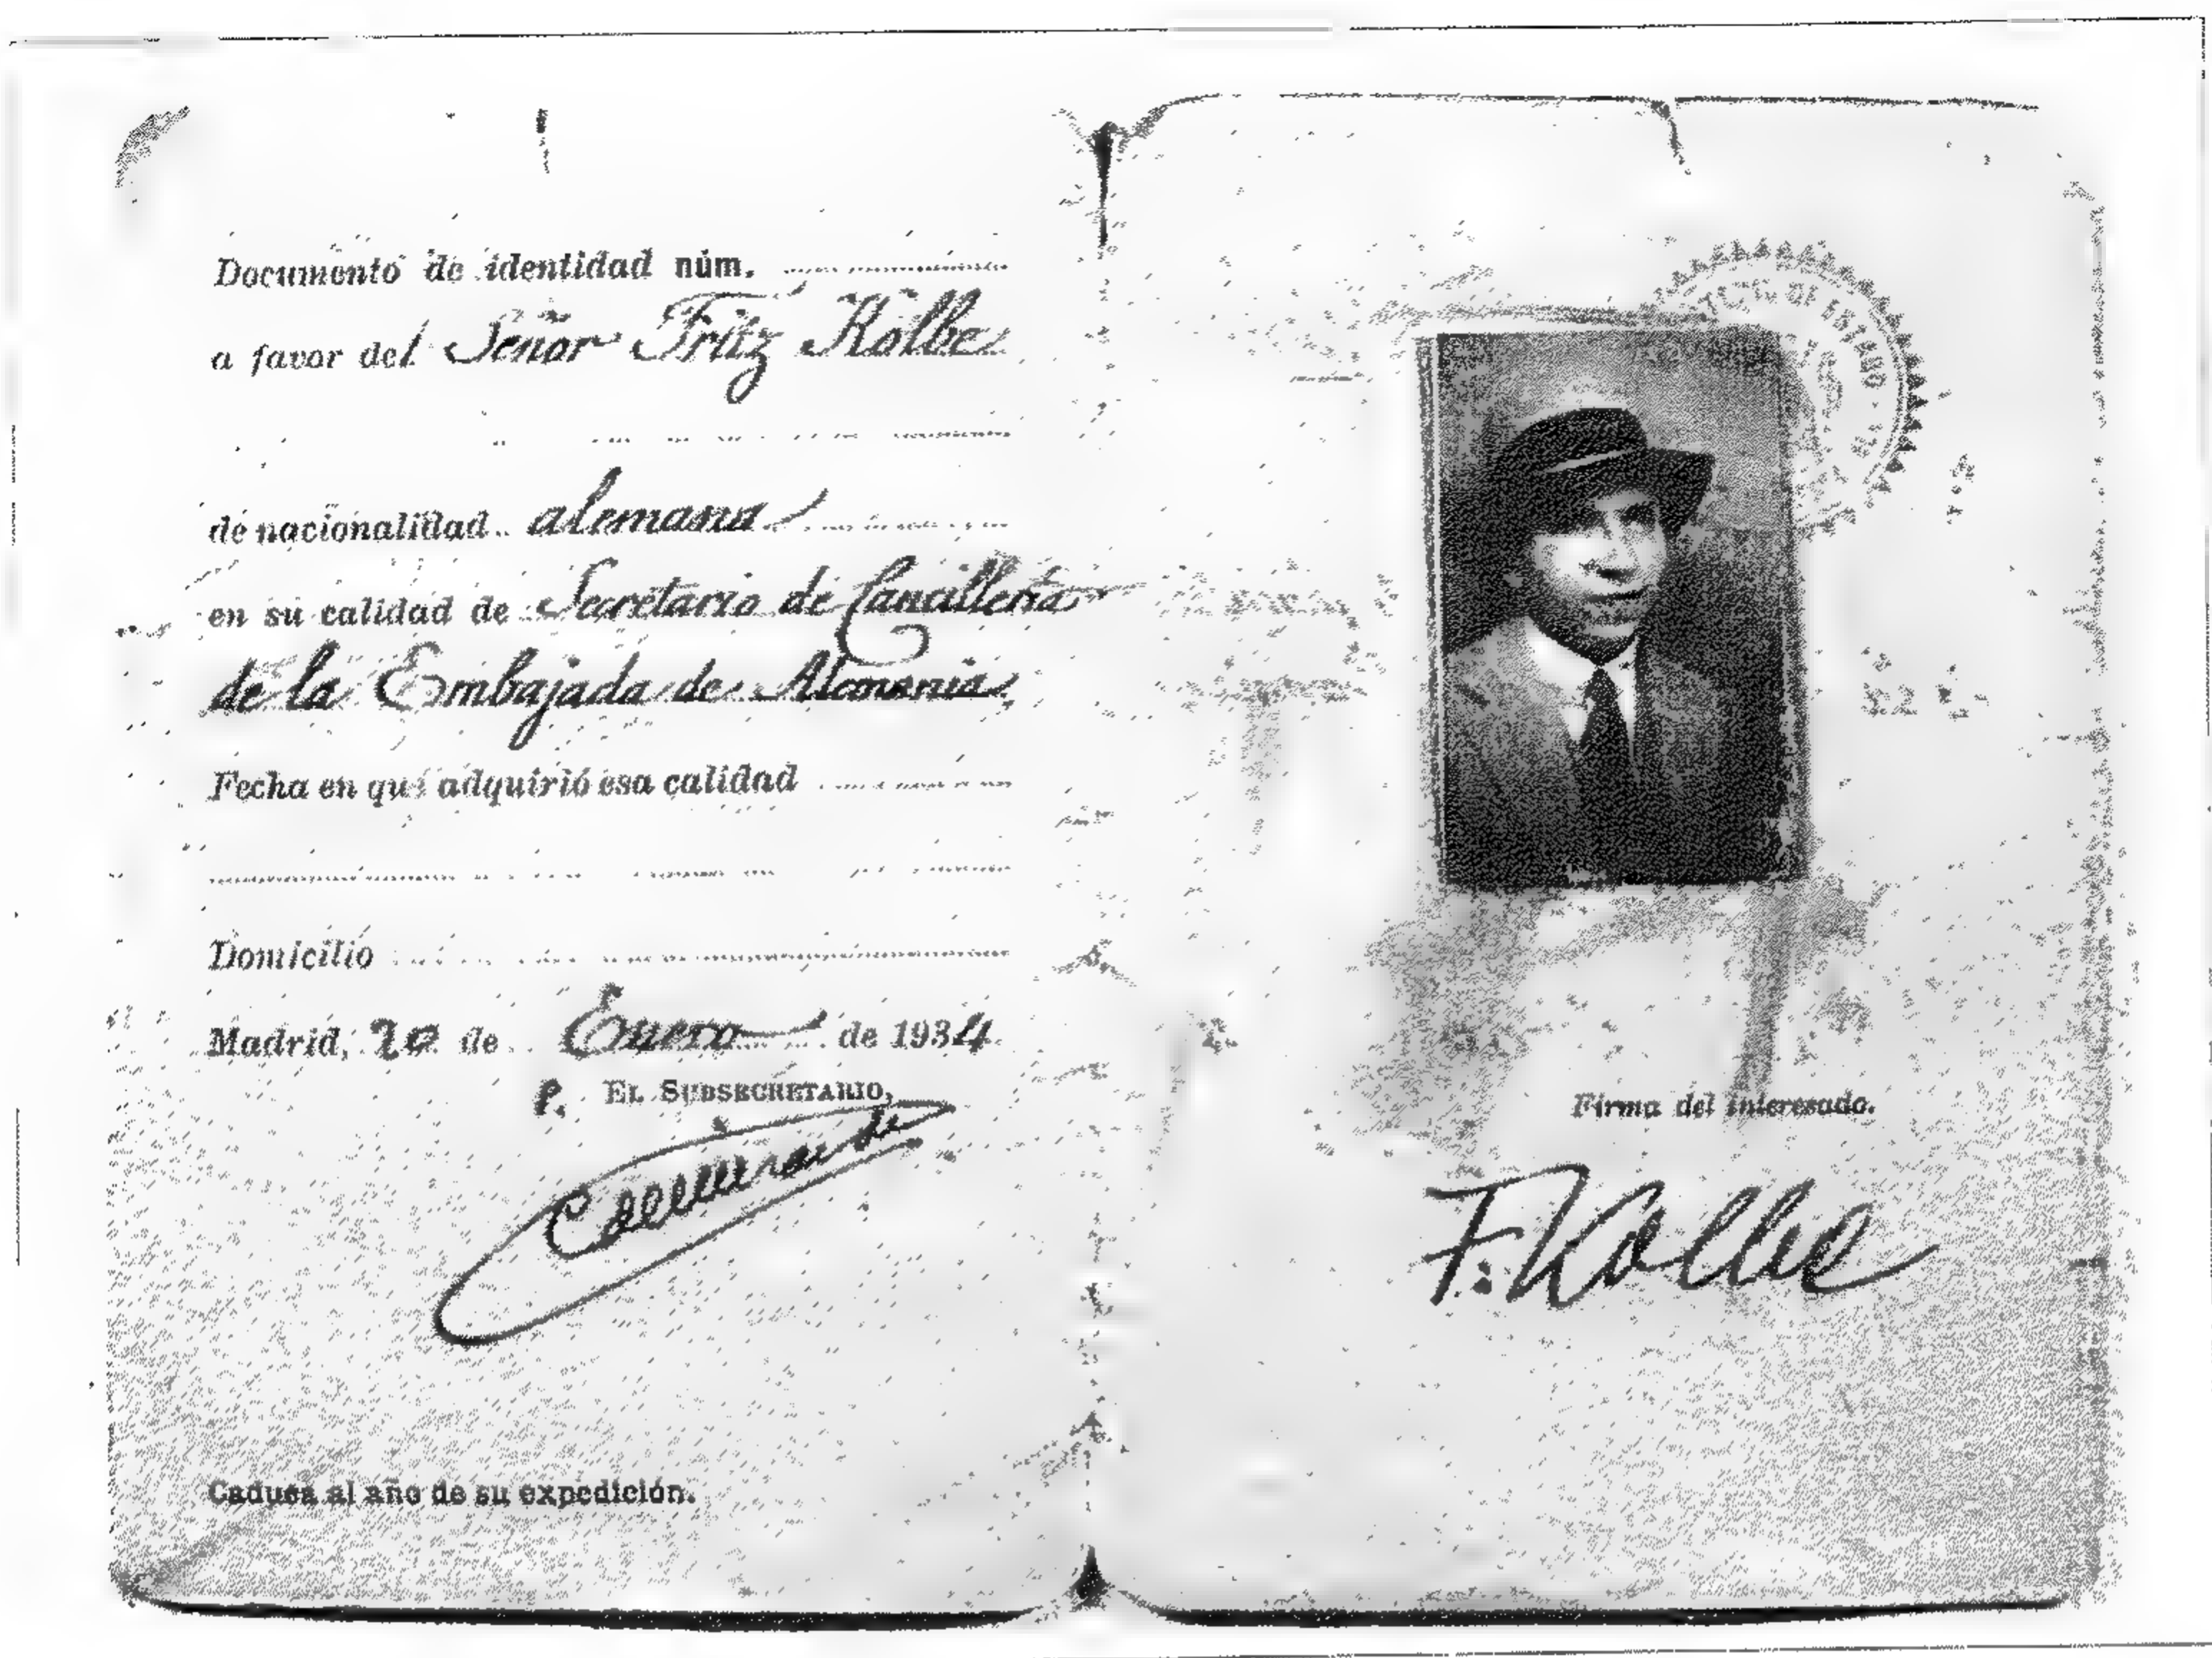 Documento de identidad núm.
a favor del Señor Fritz Kolbe
de nacionalidad alemana
en su calidad de Secretario de Cancillería
de la Embajada de Alemania
Fecha en que adquirió esa calidad
Domicilio
Madrid, 20 de Enero de 1934
P. EL SUBSECRETARIO,
Caduca al año de su expedición.
DE ESTADO
Firma del interesado.
F. Kolbe